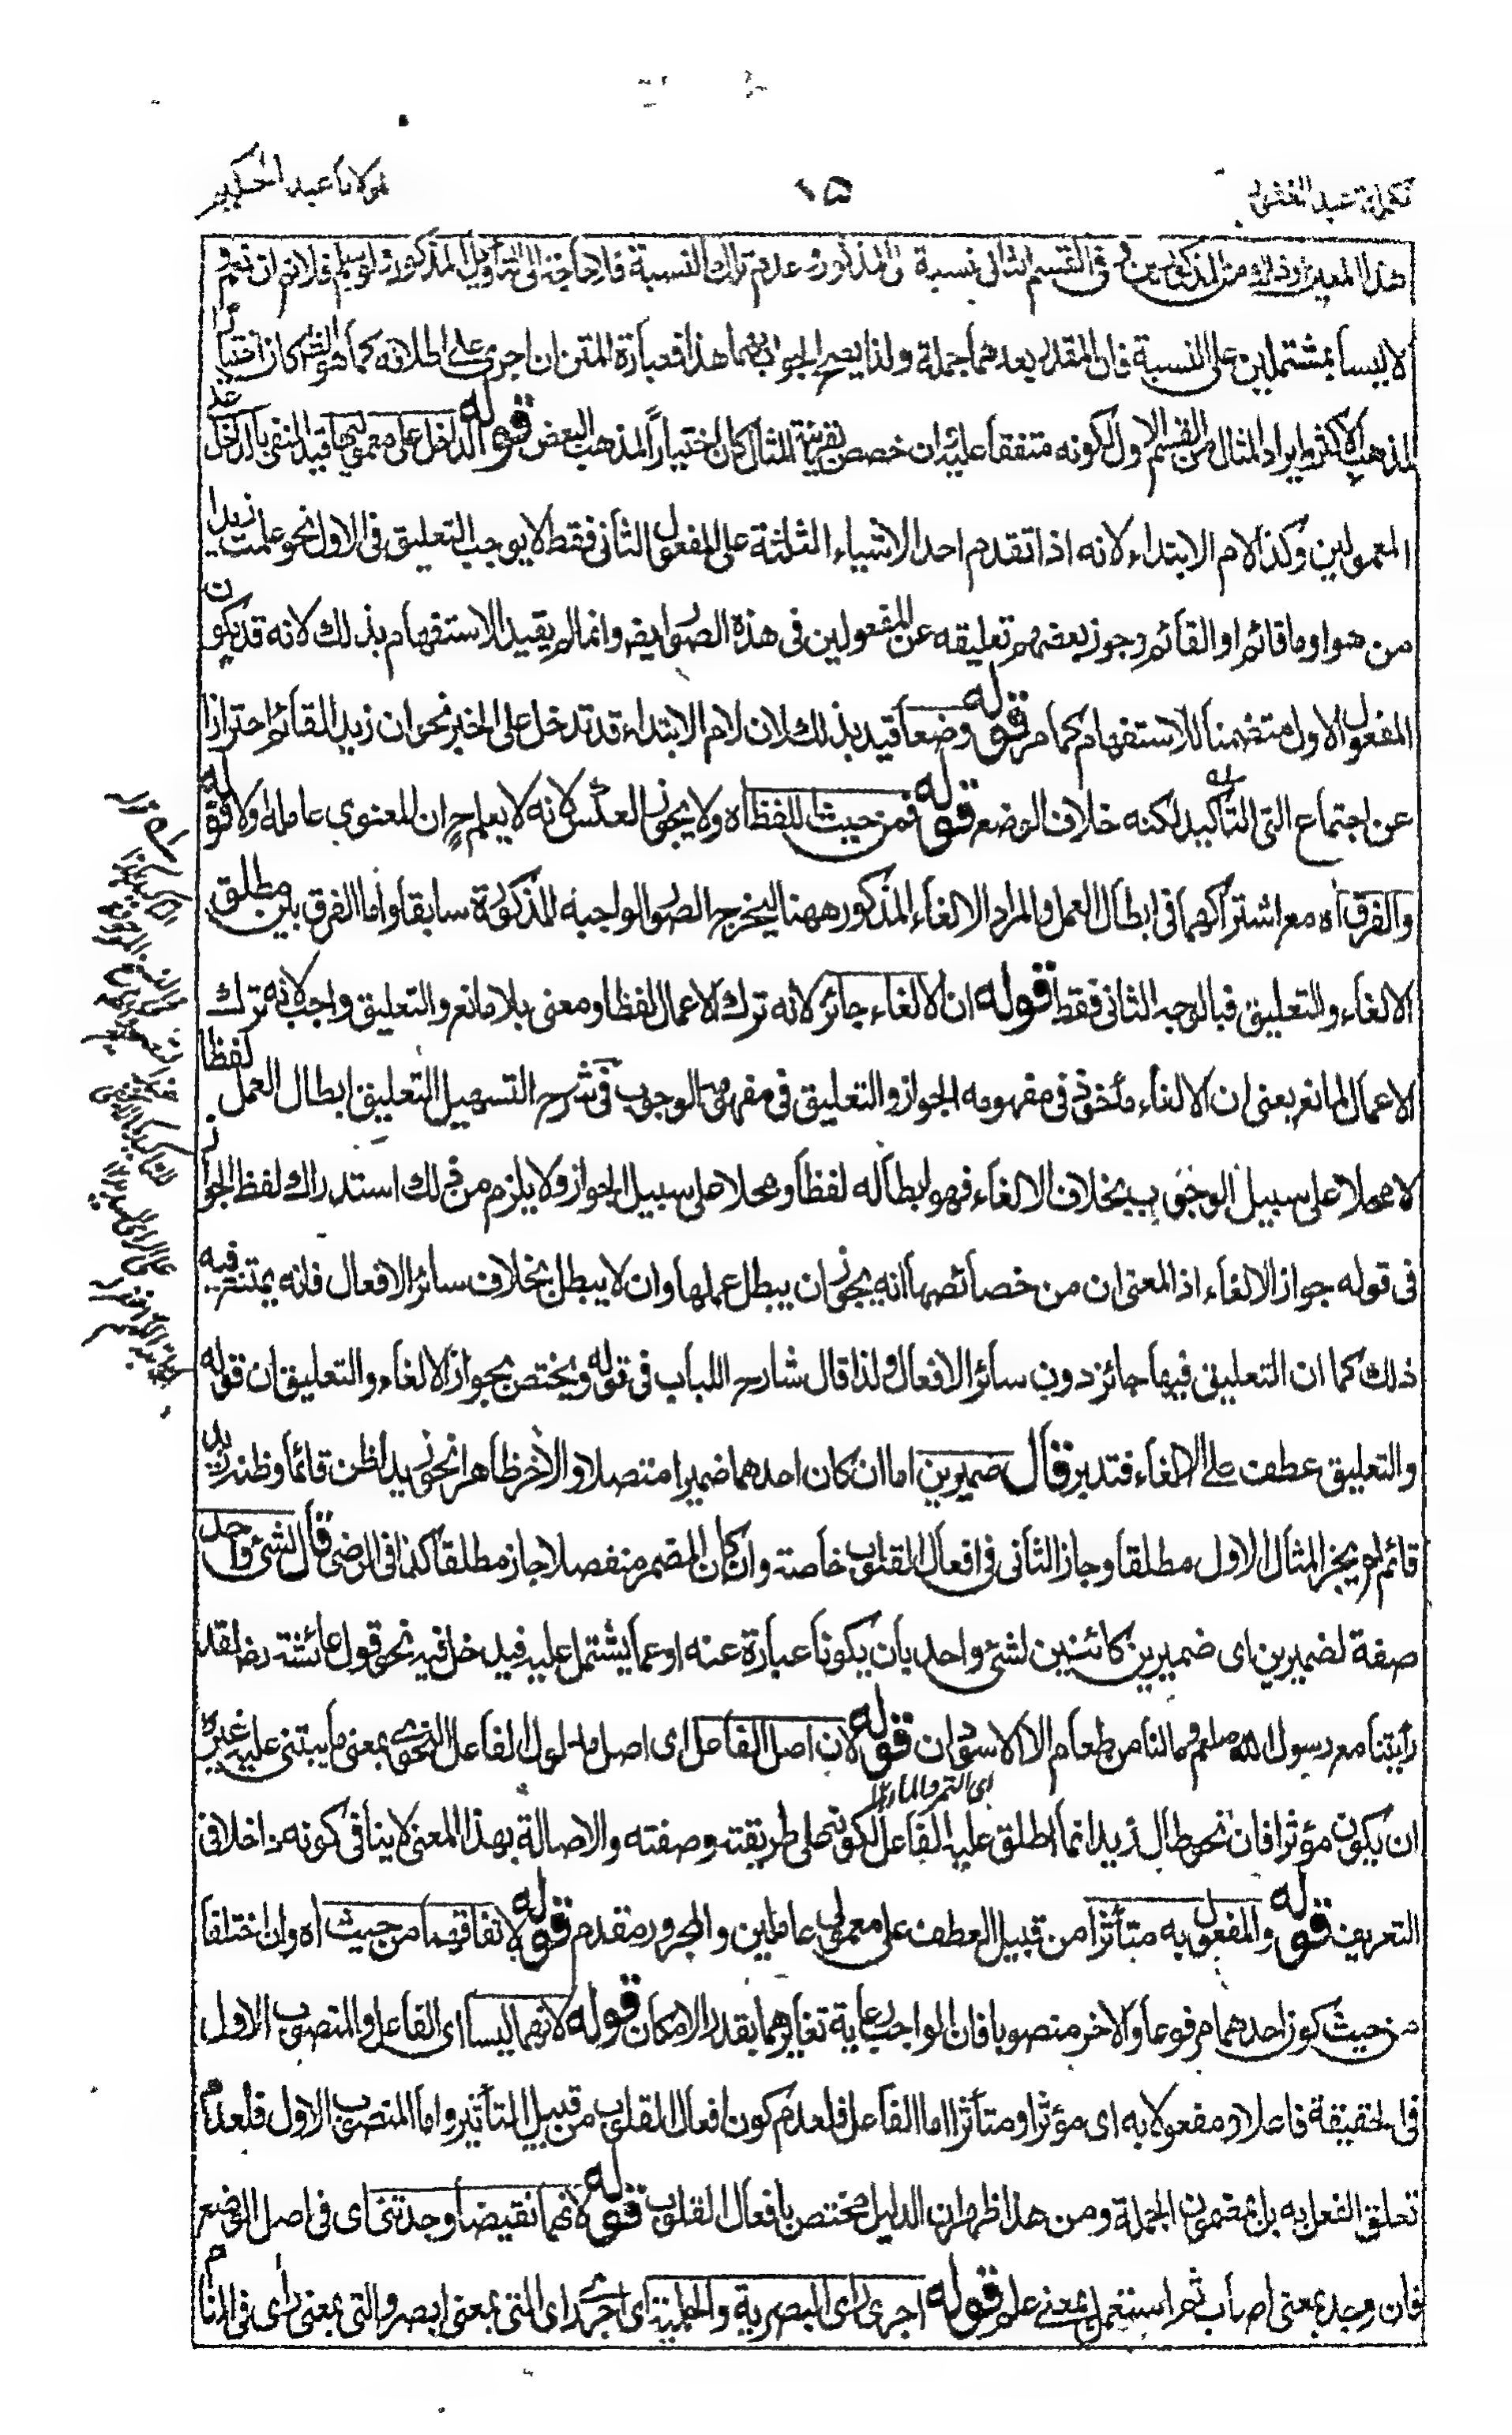 تكملة عبد الغفور
١٥
مولانا عبد الحكيم
هذا المعين من المذكورين وفى القسم الثانى نسبة الى المذكور وعدم ترك النسبة فلا حاجة الى التأويل المذكور ولو سلم فلا نم ان نعم و
لا ليسا بمشتملين على النسبة فان المقدر بعدهما جملة ولذا يصح الجواب بهما هذا فعبارة المتن ان اجرى على اطلاقه كما هو الظ كان اختيارا
لمذهب الاكثر وايراد المثال من القسم الاول لكونه متفقا عليه وان خصص بقرينة المثال كان اختياراً لمذهب البعض قوله الداخل على معموليها قيد النفى بالدخل على
المعمولين وكذا لام الابتداء لانه اذا تقدم احد الاشياء الثلثة على المفعول الثانى فقط لا يوجب التعليق فى الاول نحو علمت زيدا
من هو او ما قائم او القائم وجوز بعضهم تعليقه عن المفعولين فى هذه الصور ايضا وانما لم يقيد الاستفهام بذلك لانه قد يكون
المفعول الاول متضمنا للاستفهام كما مر قوله وضعا قيد بذلك لان لام الابتداء قد تدخل على الخبر نحو ان زيدا لقائم احترازا
عن اجتماع التى التأكيد لكنه خلاف الوضع قوله فمن حيث اللفظ اه ولا يجوز العكس لانه لا يعلم ح ان المعنوى عامله اولا قوله
والفرق اه مع اشتراكهما فى ابطال العمل والمراد الالغاء المذكور ههنا ليخرج الصور الواجبة المذكورة سابقا واما الفرق بين مطلق
الالغاء والتعليق فبالوجه الثانى فقط قوله ان الالغاء جائز لانه ترك الاعمال لفظا ومعنى بلا مانع والتعليق واجب لانه ترك
الاعمال لمانع يعنى ان الالغاء مأخوذ فى مفهومه الجواز والتعليق فى مفهومه الوجوب فى شرح التسهيل التعليق ابطال العمل لفظا
لا محلا على سبيل الوجوب بخلاف الالغاء فهو ابطاله لفظا ومحلا على سبيل الجواز ولا يلزم من ذلك استدراك لفظ الجواز
فى قوله جواز الالغاء اذ المعنى ان من خصائصها انه يجوز ان يبطل عملها وان لا يبطل بخلاف سائر الافعال فانه يمتنع فيه
ذلك كما ان التعليق فيها جائز دون سائر الافعال ولذا قال شارح اللباب فى قوله ويختص بجواز الالغاء والتعليق ان قوله
والتعليق عطف على الالغاء فتدبر قال ضميرين اما ان كان احدهما ضميرا متصلا والاخر ظاهرا نحو زيدا ظن قائما وظنه زيد
قائم لم يجز المثال الاول مطلقا وجاز الثانى فى افعال القلوب خاصة وان كان المضمر منفصلا جاز مطلقا كذا فى الرضى قال لشئ واحد
صفة لضميرين اى ضميرين كائنين لشئ واحد بان يكونا عبارة عنه او عما يشتمل عليه فيدخل فيه نحو قول عائشة رض لقد
رأيتنا مع رسول الله صلعم وما لنا من طعام الا الاسودان قوله لان اصل الفاعل اى اصل مدلول الفاعل النحوى بمعنى ما يبتنى عليه غيره
اى التمر والماء
ان يكون مؤثرا فان نحو طال زيد انما اطلق عليه الفاعل لكونه على طريقته وصفته والاصالة بهذا المعنى لا ينافى كونه من اخلافى
التعريف قوله والمفعول به متأثرا من قبيل العطف على معمولى عاملين والمجرور مقدم قوله لاتفاقهما من حيث اه وان اختلفا
من حيث كون احدهما مرفوعا والاخر منصوبا فان الواجب رعاية تغايرهما بقدر الامكان قوله لانهما ليسا اى الفاعل والمنصوب الاول
فى الحقيقة فاعلا ومفعولا به اى مؤثرا ومتأثرا اما الفاعل فلعدم كون افعال القلوب من قبيل التأثير واما المنصوب الاول فلعدم
تعلق الفعل به بل بمضمون الجملة ومن هذا ظهر ان الدليل مختص بافعال القلوب قوله لانهما نقيضا وجدتنى اى فى اصل الوضع
فان وجد بمعنى اصاب ثم استعمل بمعنى علم قوله اجرى رأى البصرية والحلمية اى اجرى رأى التى بمعنى ابصر والتى بمعنى رأى فى المنام